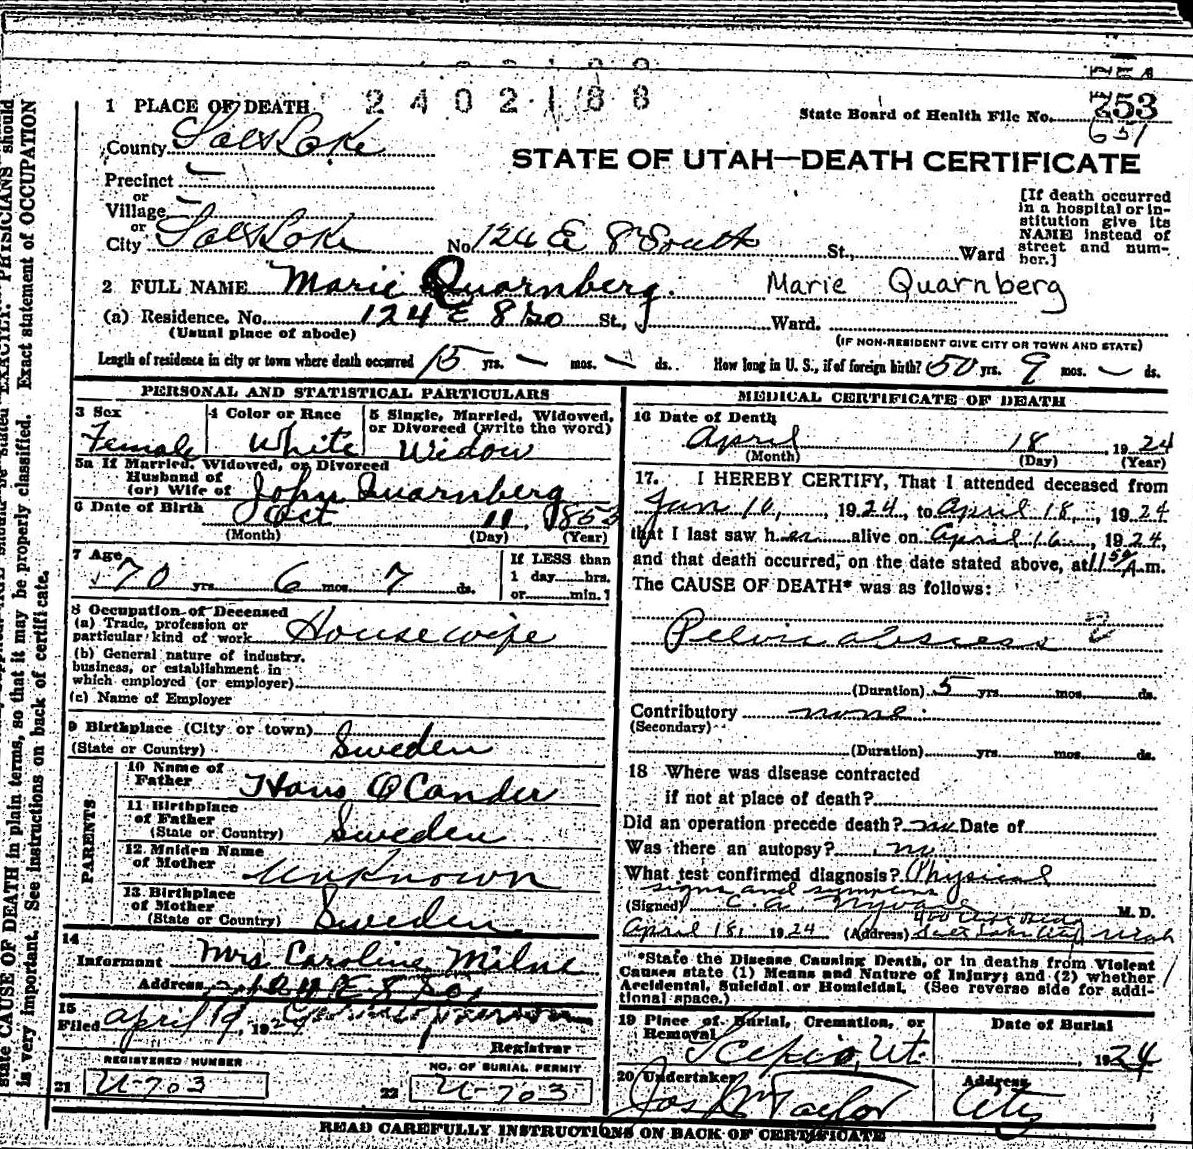 1 PLACE OF DEATH 2402188
State Board of Health File No. 753
651
County Salt Lake
STATE OF UTAH—DEATH CERTIFICATE
Precinct
or
Village
or
City Salt Lake No. 124 E 8 South St., Ward
[If death occurred in a hospital or institution give its NAME instead of street and number.]
2 FULL NAME Marie Quarnberg. Marie Quarnberg
(a) Residence. No. 124 E 8 So St., Ward.
(Usual place of abode) (IF NON-RESIDENT GIVE CITY OR TOWN AND STATE)
Length of residence in city or town where death occurred 15 yrs. — mos. — ds. How long in U. S., if of foreign birth? 50 yrs. 9 mos. — ds.
PERSONAL AND STATISTICAL PARTICULARS
3 Sex Female
4 Color or Race White
5 Single, Married, Widowed, or Divorced (write the word) Widow
5a If Married, Widowed, or Divorced
Husband of
(or) Wife of John Quarnberg
6 Date of Birth Oct 11 1853
(Month) (Day) (Year)
7 Age 70 yrs. 6 mos. 7 ds.
If LESS than
1 day....hrs.
or....min.]
8 Occupation of Deceased
(a) Trade, profession or
particular kind of work Housewife
(b) General nature of industry,
business, or establishment in
which employed (or employer)
(c) Name of Employer
9 Birthplace (City or town)
(State or Country) Sweden
PARENTS
10 Name of Father Hans O Cander
11 Birthplace of Father
(State or Country) Sweden
12 Maiden Name of Mother Unknown
13 Birthplace of Mother
(State or Country) Sweden
14
Informant Mrs Caroline Milne
Address 124 E 8 So.
15
Filed April 19, 1924
Registrar
REGISTERED NUMBER
21 U-703
NO. OF BURIAL PERMIT
22 U-703
MEDICAL CERTIFICATE OF DEATH
16 Date of Death
April 18, 1924
(Month) (Day) (Year)
17. I HEREBY CERTIFY, That I attended deceased from
Jan 10, 1924, to April 18, 1924
that I last saw her alive on April 16, 1924,
and that death occurred, on the date stated above, at 11 50 A.m.
The CAUSE OF DEATH* was as follows:
Pelvic abscess
(Duration) 5 yrs. mos. ds.
Contributory none.
(Secondary)
(Duration) yrs. mos. ds.
18 Where was disease contracted
if not at place of death?
Did an operation precede death? no Date of
Was there an autopsy? no
What test confirmed diagnosis? Physical
signs and symptoms
(Signed) C. A. M. D.
April 18, 1924 (Address) Salt Lake City Utah
*State the Disease Causing Death, or in deaths from Violent
Causes state (1) Means and Nature of Injury; and (2) whether
Accidental, Suicidal or Homicidal. (See reverse side for additional space.)
19 Place of Burial, Cremation, or Removal Scipio, Ut.
Date of Burial 1924
20 Undertaker Jos Wm Taylor
Address City
READ CAREFULLY INSTRUCTIONS ON BACK OF CERTIFICATE
state CAUSE OF DEATH in plain terms, so that it may be properly classified. Exact statement of OCCUPATION
is very important. See instructions on back of certificate.